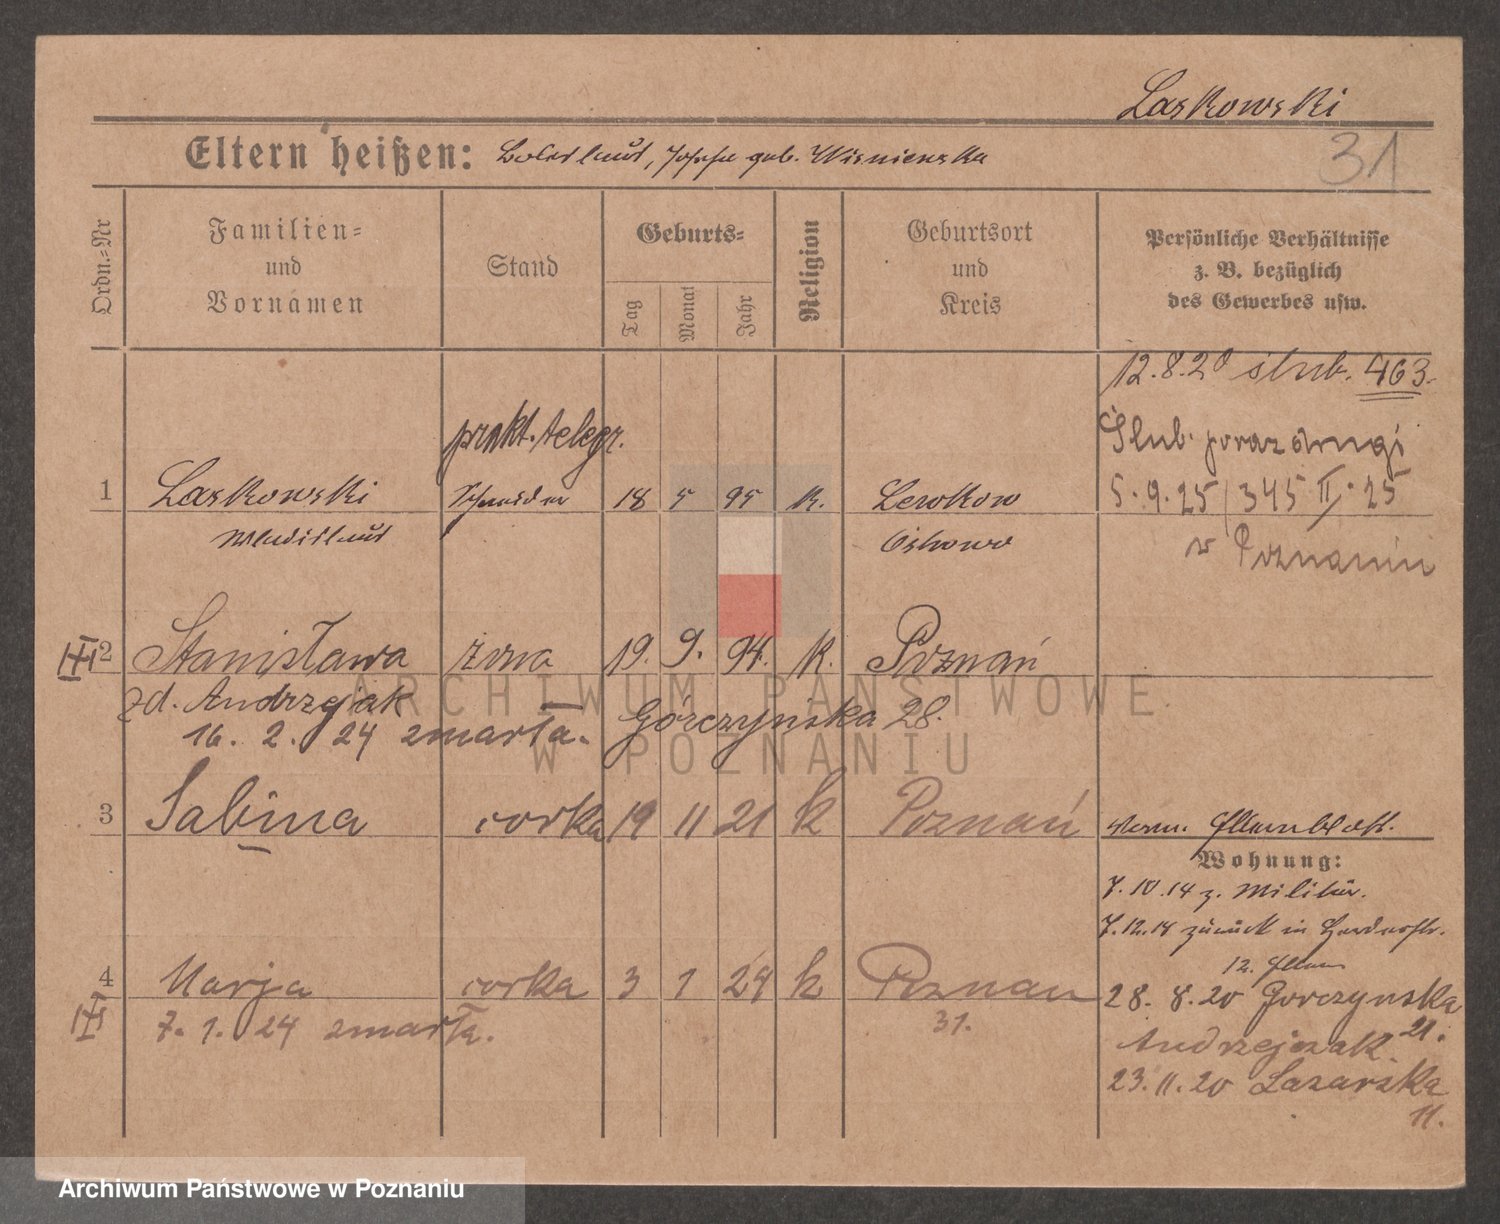 Laskowski
31
Eltern heißen: Boleslaus, Josefa geb. Wisniewska
Ordn.=Nr
Familien=
und
Vornamen
Stand
Geburts=
Tag
Monat
Jahr
Religion
Geburtsort
und
Kreis
Persönliche Verhältnisse
z. B. bezüglich
des Gewerbes usw.
12.8.20 ślub. 463.
prakt. telegr.
Ślub poraz drugi
1 Laskowski Schneider 18 5 95 K. Lewkow
5.9.25/345 II/25
Wladislaus Ostrowo
w Poznaniu
2 Stanisława żona 19. 9. 94. K. Poznań
zd. Andrzejak
16. 2. 24 zmarła. Górczyńska 28.
ARCHIWUM PAŃSTWOWE
W POZNANIU
3 Sabina corka 19 11 21 k Poznań
Wohnung:
7.10.14 z. Militär.
7.12.18 zurück in
12.
4 Marja corka 3 1 24 k Poznan
28. 8. 20 Gorczynska
21.
7. 1. 24 zmarła. 31.
Andrzejczak.
23. 11. 20 Lazarska
11.
Archiwum Państwowe w Poznaniu